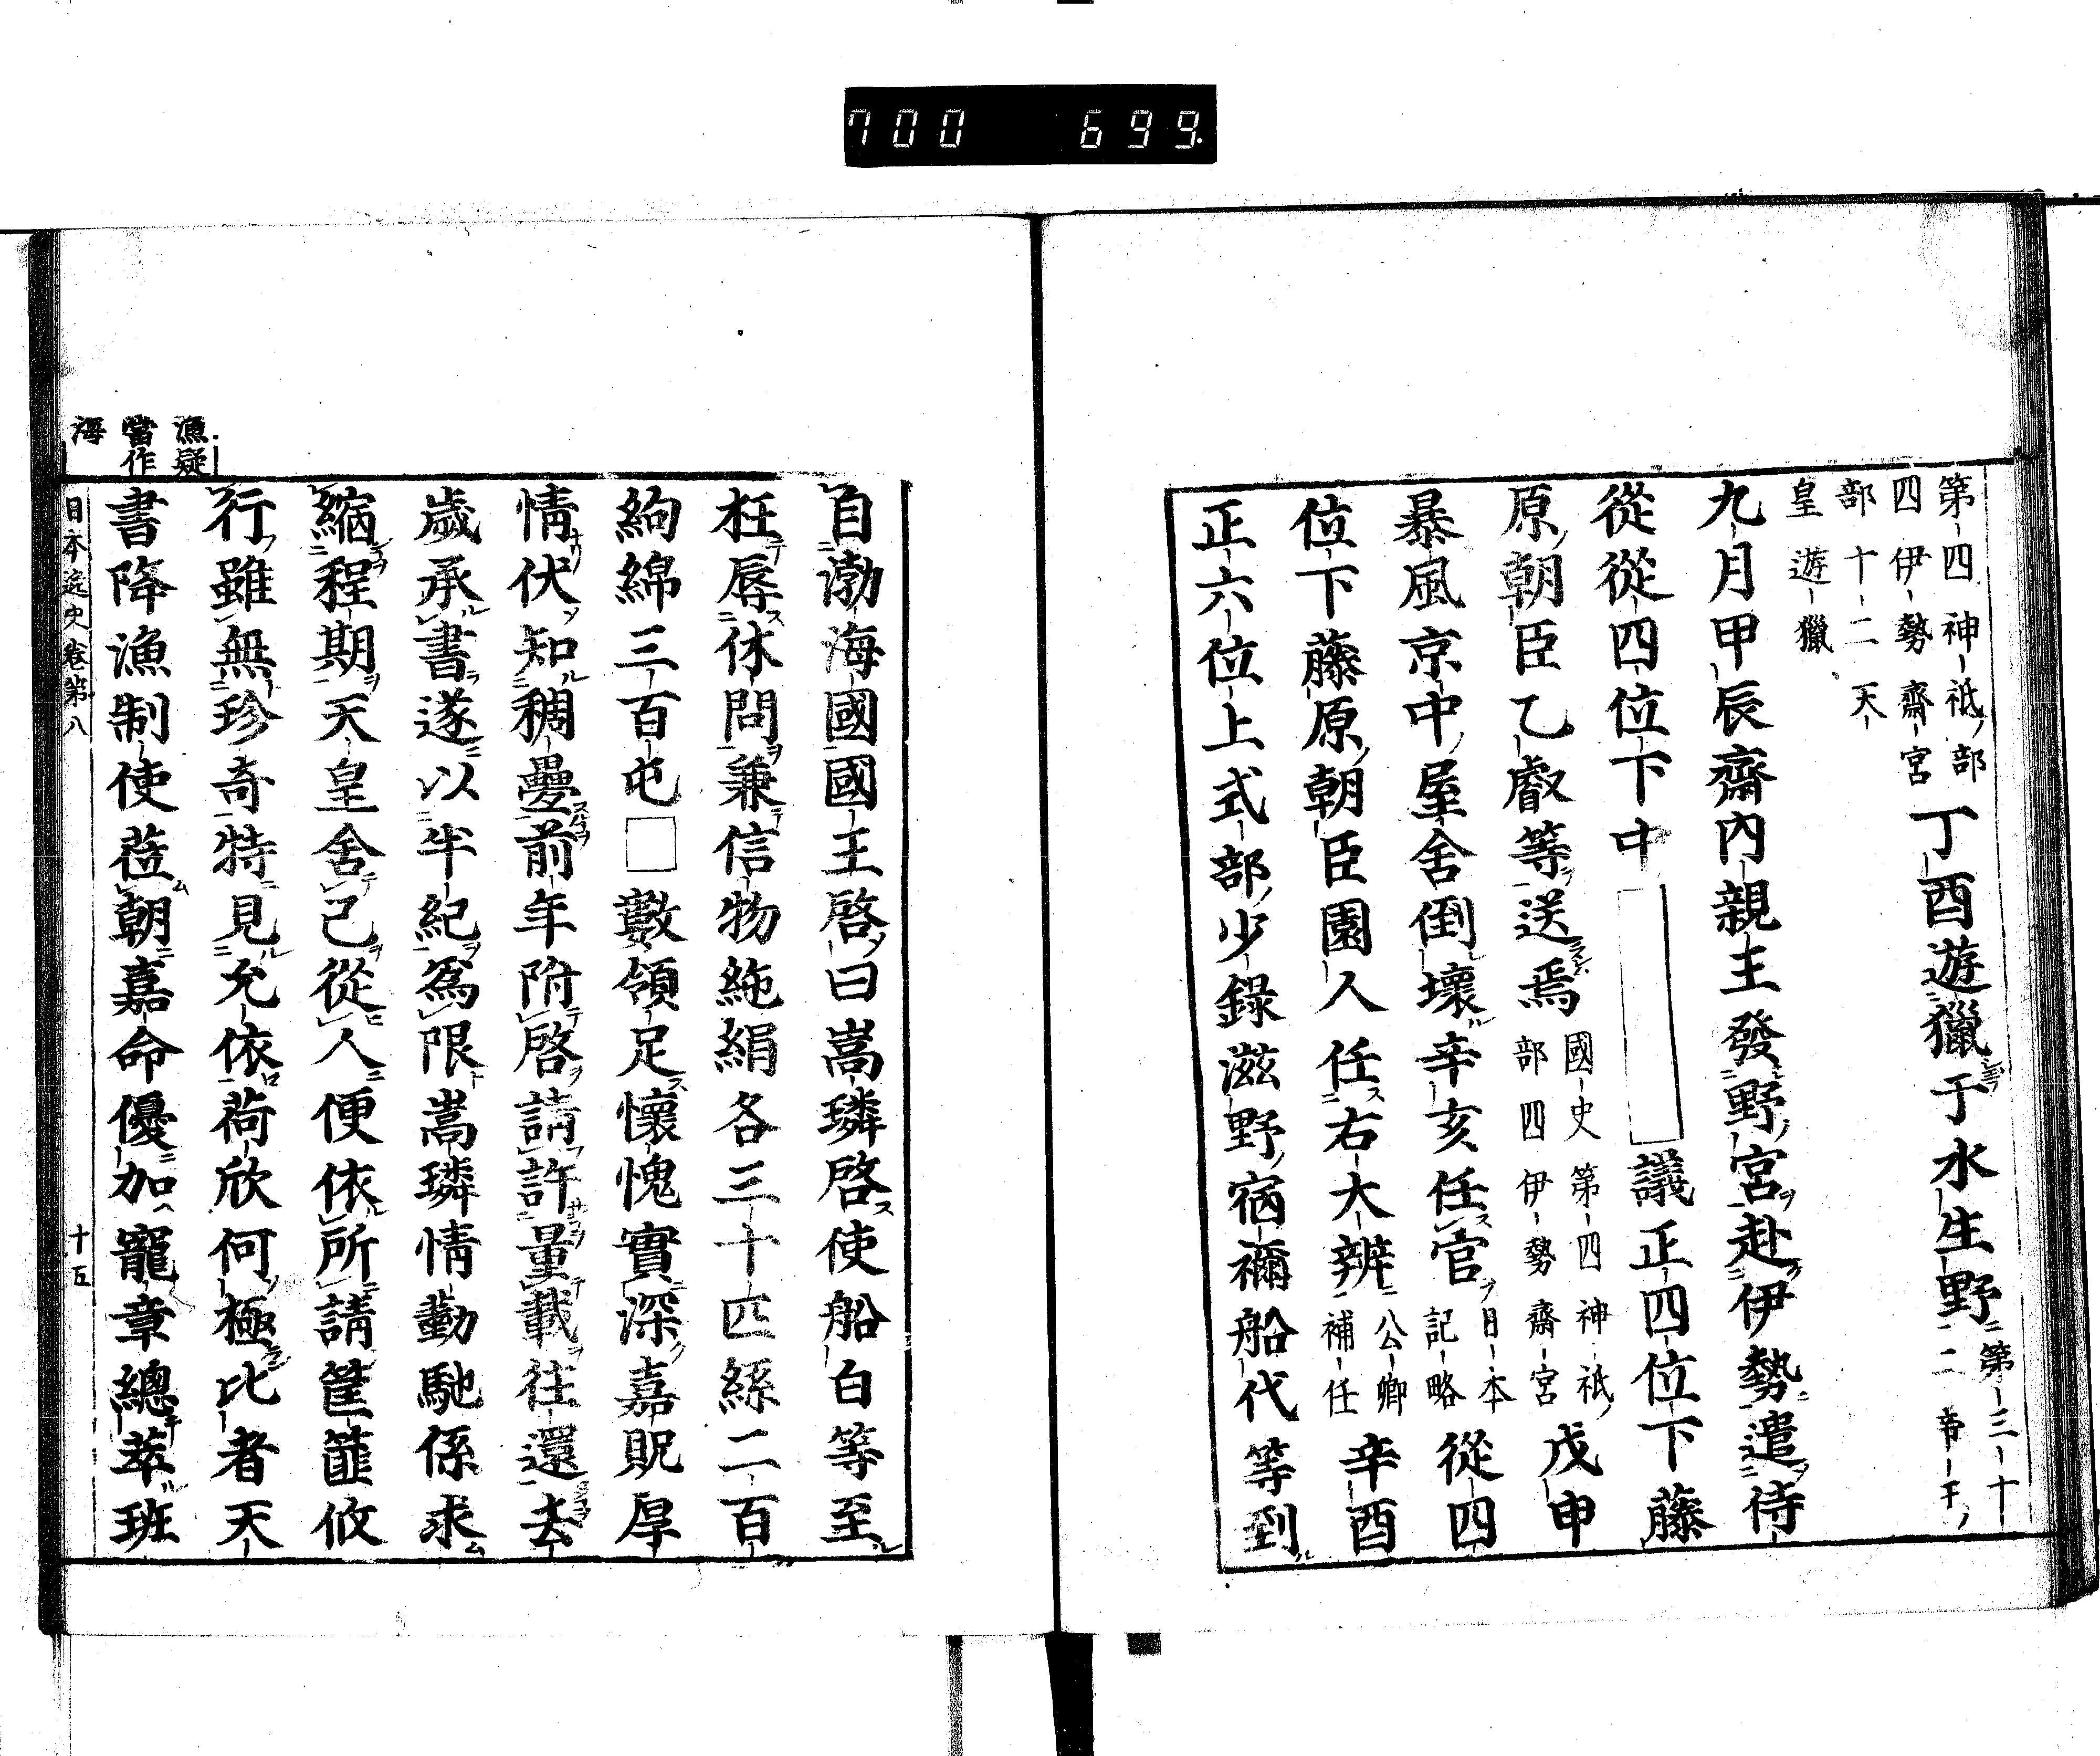 第四神祇部四伊勢齋宮丁酉遊獵于水生野第三十二帝王
部十二天皇遊獵
九月甲辰齋內親王發野宮赴伊勢遣侍
從從四位下中　議正四位下藤
原朝臣乙叡等送焉國史第四神祇部四伊勢齋宮戊申
暴風京中屋舍倒壞辛亥任官日本記略從四
位下藤原朝臣園人任右大辨公卿補任辛酉
正六位上式部少錄滋野宿禰船代等到
自渤海國國王啓曰嵩璘啓使船白等至
枉辱休問兼信物絁絹各三十匹絲二百
絇綿三百屯□數領足懷愧實深嘉貺厚
情伏知稠疊前年附啓請許量載往還去
歲承書遂以半紀爲限嵩璘情勤馳係求
縮程期天皇舍己從人便依所請筐篚攸
行雖無珍奇特見允依荷欣何極比者天
書降漁制使莅朝嘉命優加寵章總萃班
漁疑
當作
海
日本逸史卷第八　十五
700 699